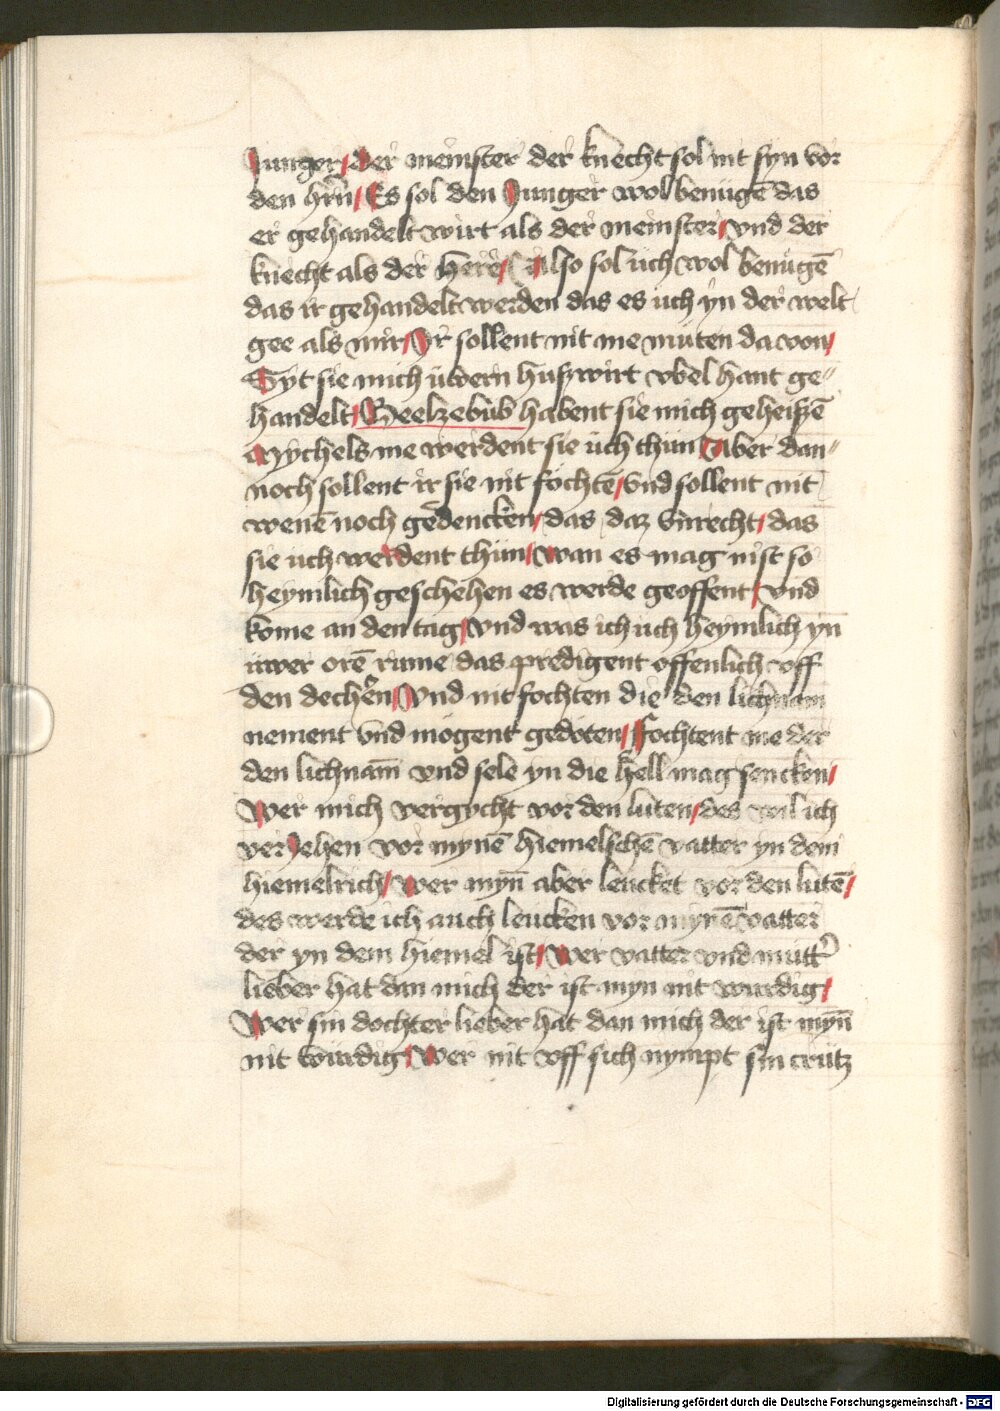 Junger / der meinster der knecht sol nit syn vor
den hrñ / Es sol den Junger wol benůgē das
er gehandelt wirt als der meinster / vnd der
knecht als der here / Also sol uch wol benůgē
das ir gehandelt werden das es uch yn der welt
gee als mir / Ir sollent nit me můten da von /
Syt sie mich ůwern hußwirt vbel hant ge⸗
handelt / Beelzebub habent sie mich geheißē
Mychels me werdent sie uch thůn / Aber dan⸗
noch sollent ir sie nit fochtē / vnd sollent nit
wenē noch gedencken / das daz vnrecht / das
sie uch werdent thůn / wan es mag nist so
heymlich geschehen es werde geoffent / vnd
kome an den tag / vnd was ich uch heymlich yn
uwer orē rune das predigent offenlich vff
den dechern / Vnd nit fochten die den lichnam
nement vnd mögent gedöten / Fochtent me der
den lichnam̄ vnd sele yn die hell mag sencken /
Wer mich vergycht vor den luten / des wil ich
verJehen vor mynē hiemelschē vatter yn dem
hiemelrich / Wer myn̄ aber leucket vor den lutē /
des werde ich auch leucken vor mynē vatter
der yn dem hiemel ist / Wer vatter vnd mutt̄
lieber hat dan mich der ist myn nit wurdig /
Wer sin dochter lieber hat dan mich der ist myn̄
nit wurdig / Wer nit vff sich nympt sin crutz
Digitalisierung gefördert durch die Deutsche Forschungsgemeinschaft - DFG